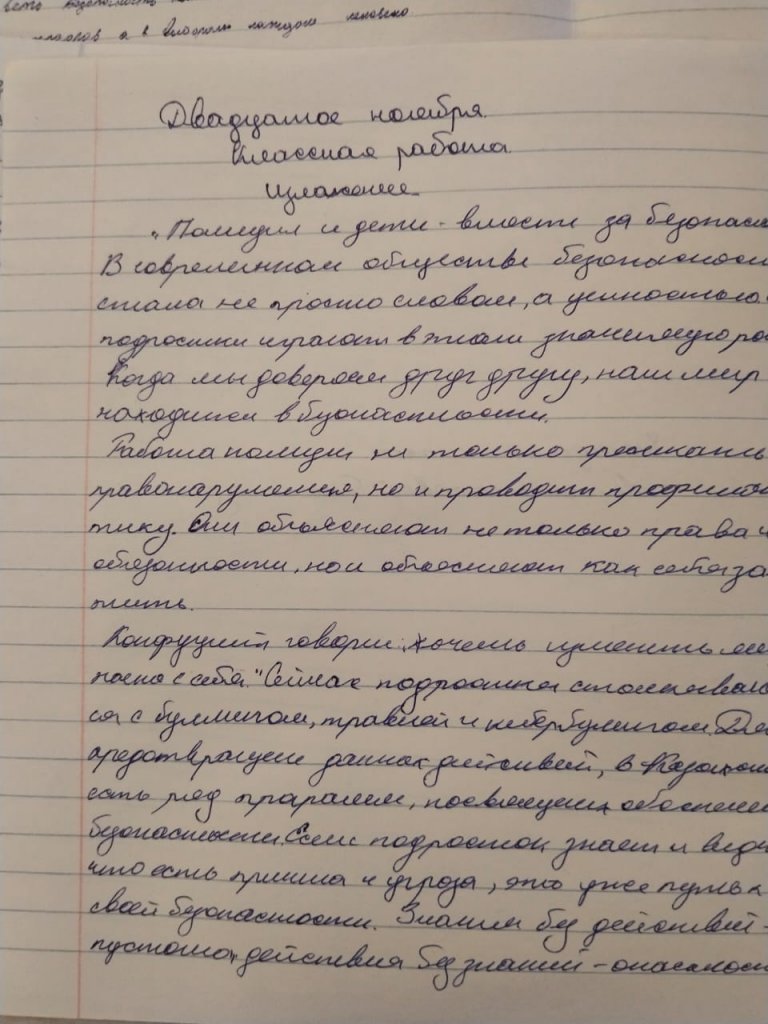 а в каждого человека
Двадцатое ноября.
Классная работа.
Изложение
"Полиция и дети - вместе за безопасн
В современном обществе безопасност
стала не просто словом, а ценностью.
подростки играют в этом значимую ро
Когда мы доверяем друг другу, наш мир
находится в безопасности.
Работа полиции не только пресекать
правонарушения, но и проводит профилак
тику. Они объясняют не только права и
обязанности, но и объясняют как себя за
тить.
Конфуций говорил: хочешь изменить ми
начни с себя." Сейчас подростки сталкиваю
ся с буллингом, травлей и кибербулингом. Для
предотвращения данных действий, в Казахст
есть ряд программ, посвященных обеспечен
безопасности. Если подросток знает и види
что есть причина и угроза, это уже путь к
своей безопасности. Знания без действий -
пустота, действия без знаний - опасност